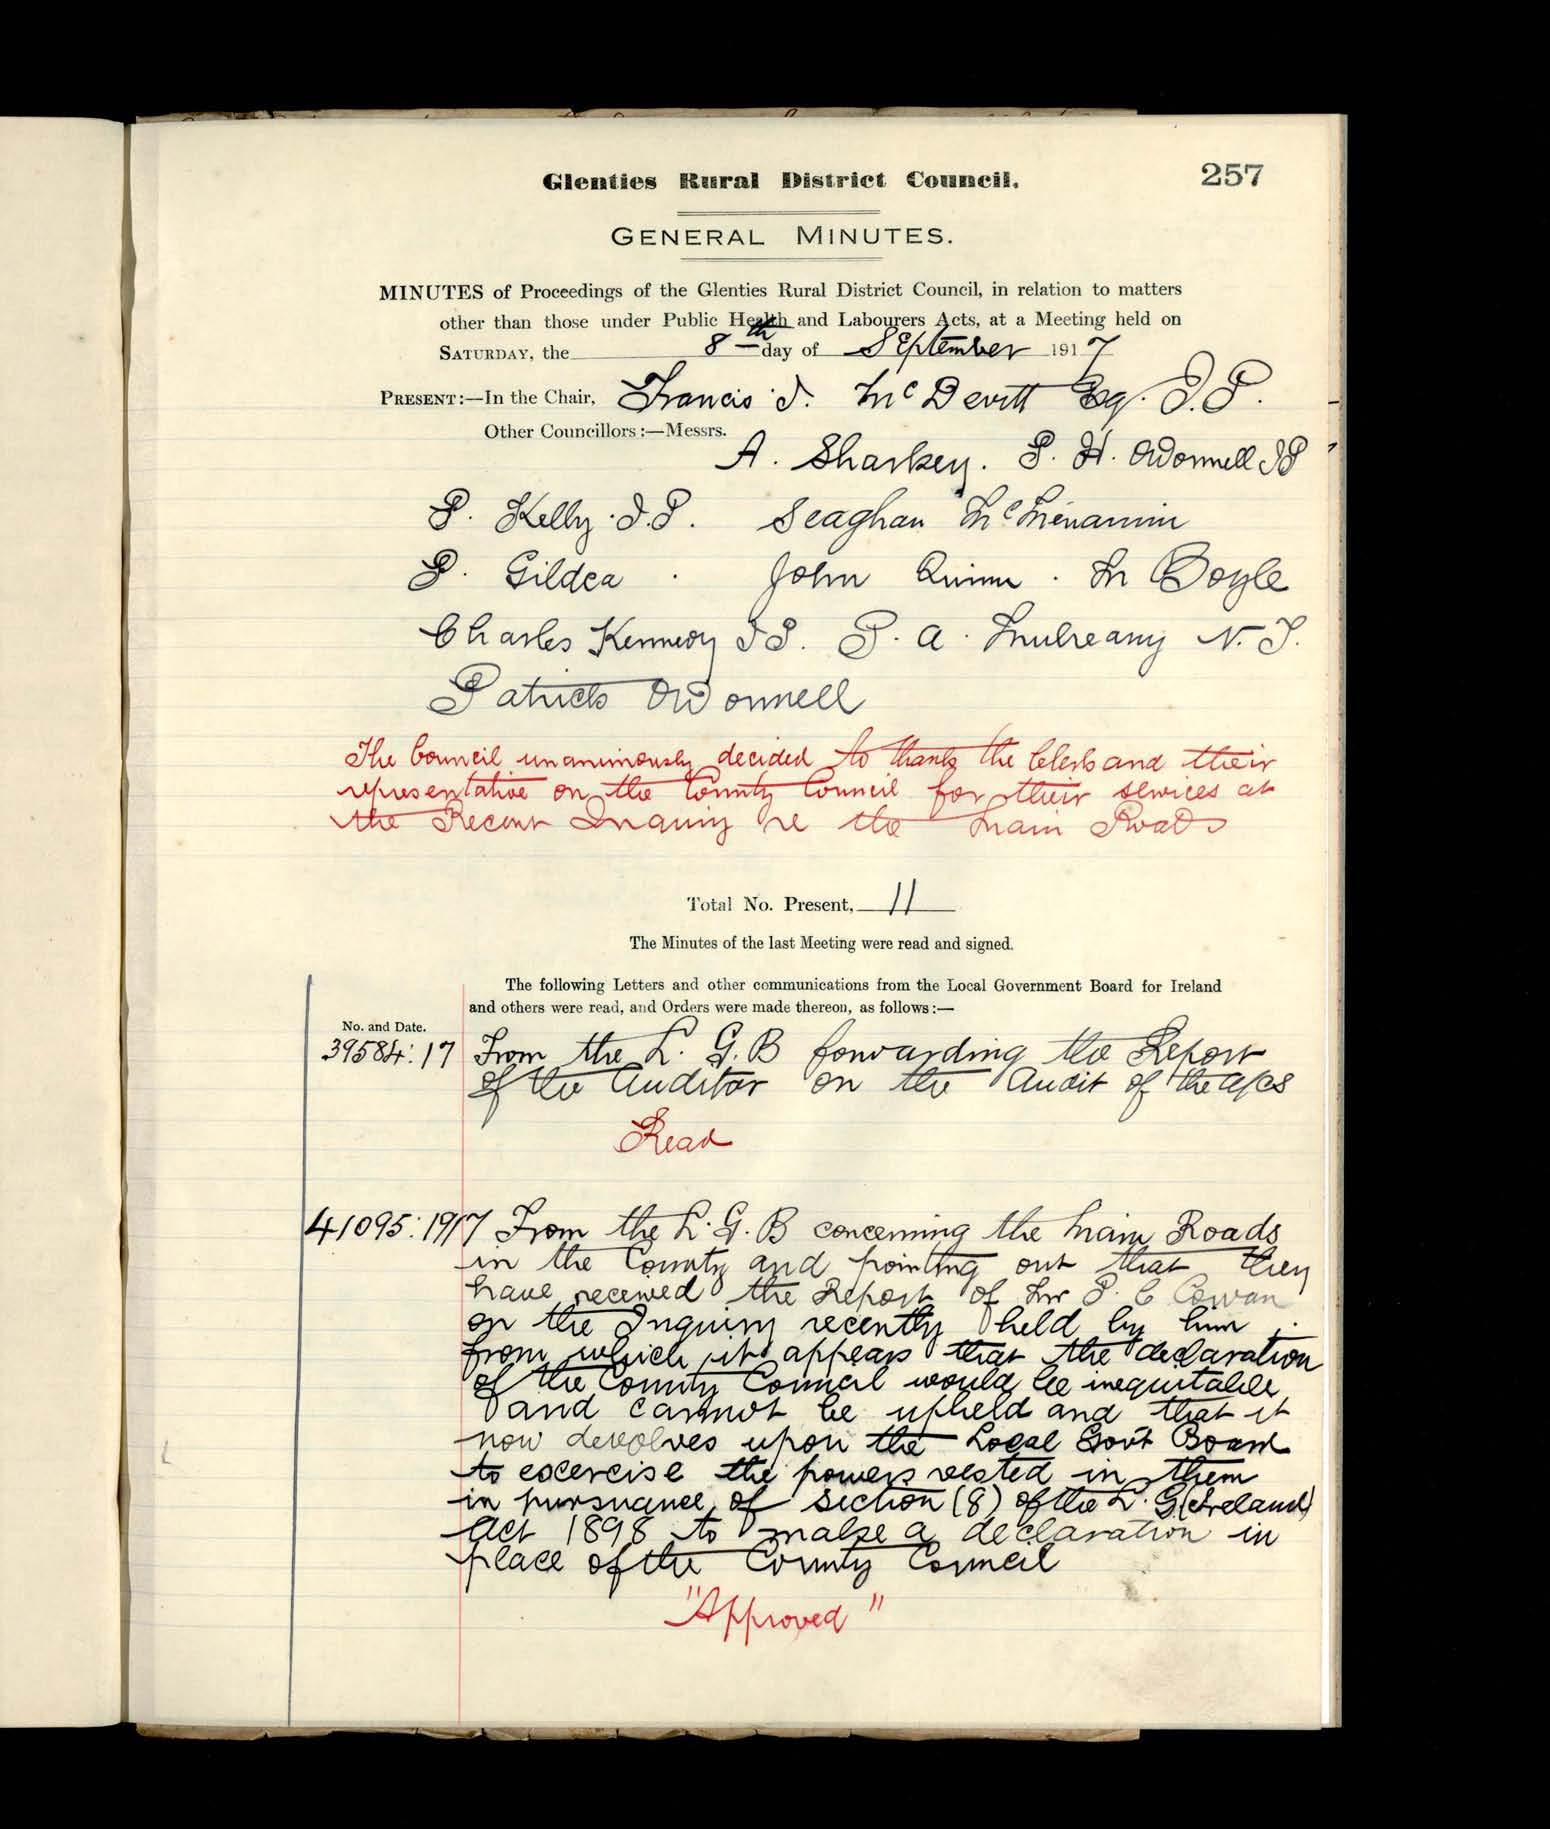 257
Glenties Rural District Council.
GENERAL MINUTES.
MINUTES of Proceedings of the Glenties Rural District Council, in relation to matters
other than those under Public Health and Labourers Acts, at a Meeting held on
SATURDAY, the 8th day of September 1917
PRESENT:—In the Chair, Francis J. McDevitt Esq. J.P.
Other Councillors:—Messrs.
A. Sharkey. P. H. O'Donnell JP
P. Kelly. J.P. Seaghan McMenamin
P. Gildea. John Quinn. M Boyle
Charles Kennedy JP. P. A. Mulreany N.T.
Patrick O'Donnell
The Council unanimously decided to thank the Clerk and their
representative on the County Council for their services at
the Recent Inquiry re the Main Roads
Total No. Present, 11
The Minutes of the last Meeting were read and signed.
The following Letters and other communications from the Local Government Board for Ireland
and others were read, and Orders were made thereon, as follows:—
No. and Date.
39584:17 From the L. G. B forwarding the Report
of the Auditor on the Audit of the a/cs
Read
41095:1917 From the L. G. B concerning the Main Roads
in the County and pointing out that they
have received the Report of Mr P. C Cowan
on the Inquiry recently held by him.
from which it appears that the declaration
of the County Council would be inequitable
and cannot be upheld and that it
now devolves upon the Local Govt Board
to excercise the powers vested in them
in pursuance of section (8) of the L. G (Ireland)
Act 1898 to make a declaration in
place of the County Council
"Approved"